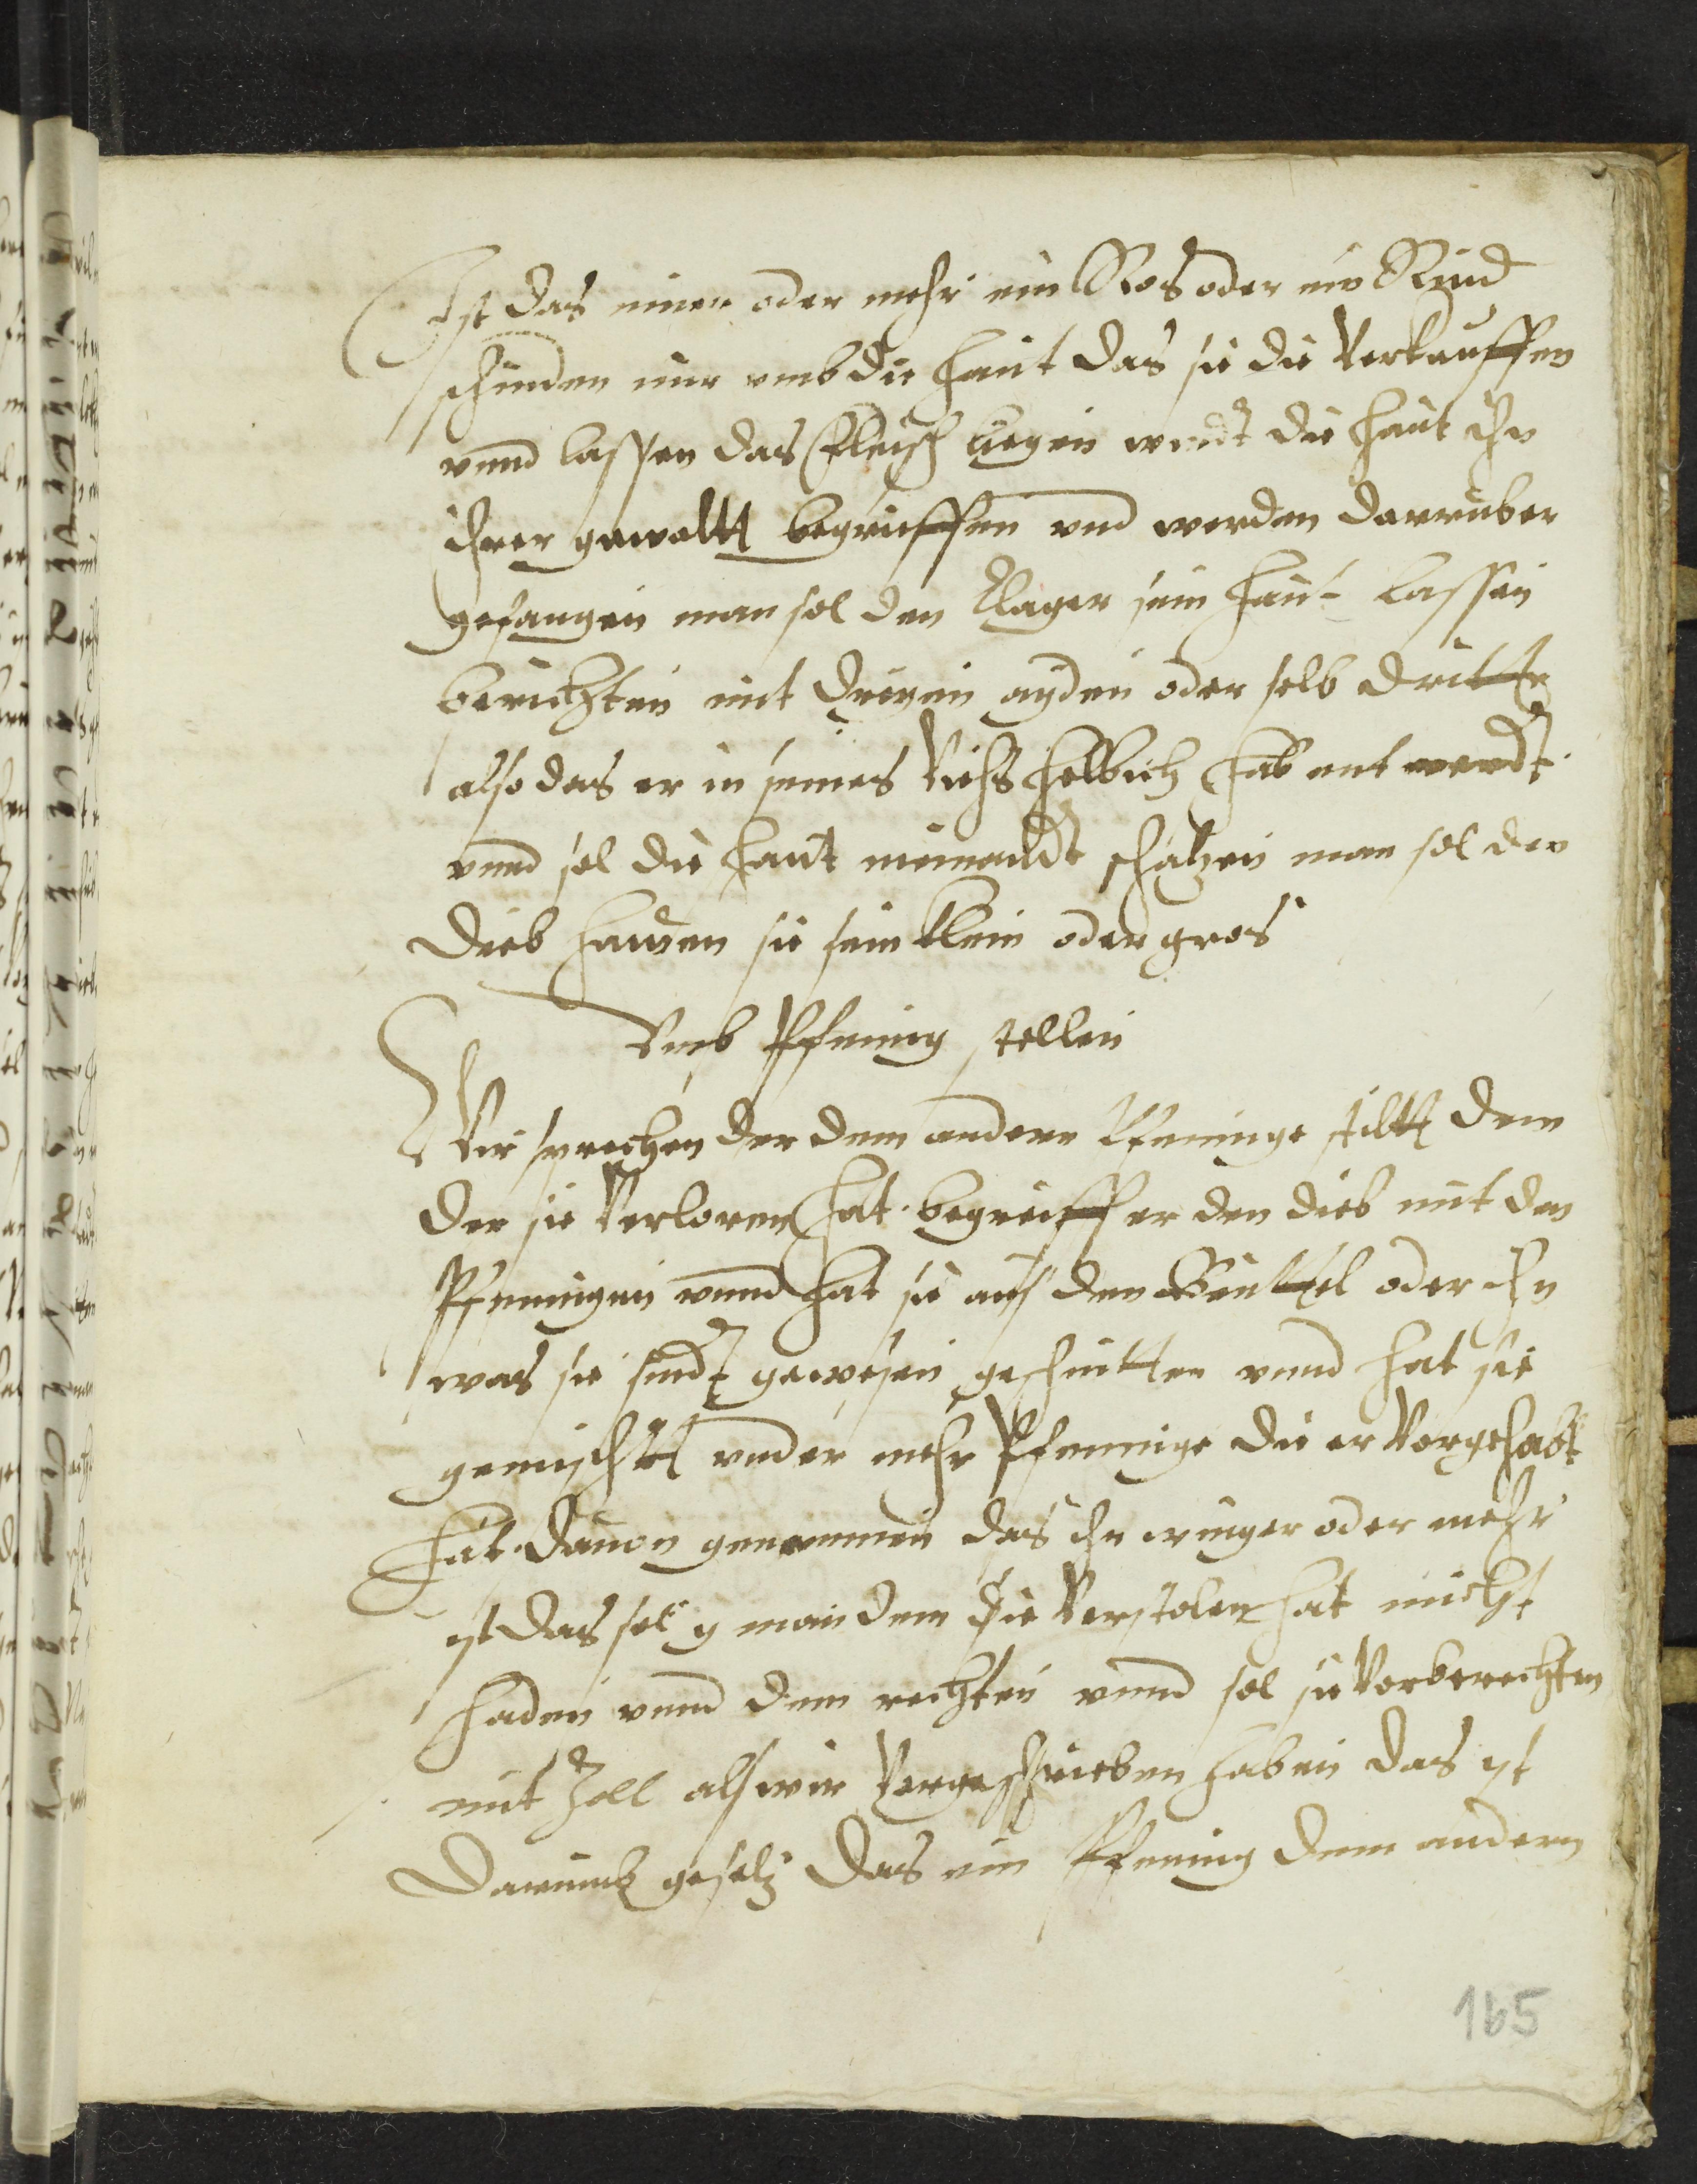 Ist das einer oder mehr ein Ros oder ein Rind
schinden nur vmb die haut das sie die verkauffen
vnnd lassen das fleisch liegen wirdt die haut ihn
ihrer gewaltt begrieffen vnd werden darruber
gefangen man sol den klager sein haut lassen
berichten mit dreyen ayden oder selb dritte
also das er in seines viehs helblich hab entwendt
vnnd sol die haut niemandt schatzen man sol den
Dieb hangen sie sein klein oder gros
Vmb Pfening stellen
Wir sprechen der dem andern Pfeninge stiltt dem
der sie verloren hat begreifft er den dieb mit den
Pfenningen vnnd hat sie aus den Beuttel oder ihn
was sie sindt gewesen geschnitten vnnd hat sie
gemischtt vnder mehr Pfenninge die er vorgehabt
hat dauon genommen das ihr weniger oder mehr
ist das sol man dem die verstolen hat nicht
schaden vnnd dem rechten vnnd sol sie vorberechten
mit Zoll als wir vorgeschrieben haben das ist
Darumb gesetz das ein Pfening dem andern
165